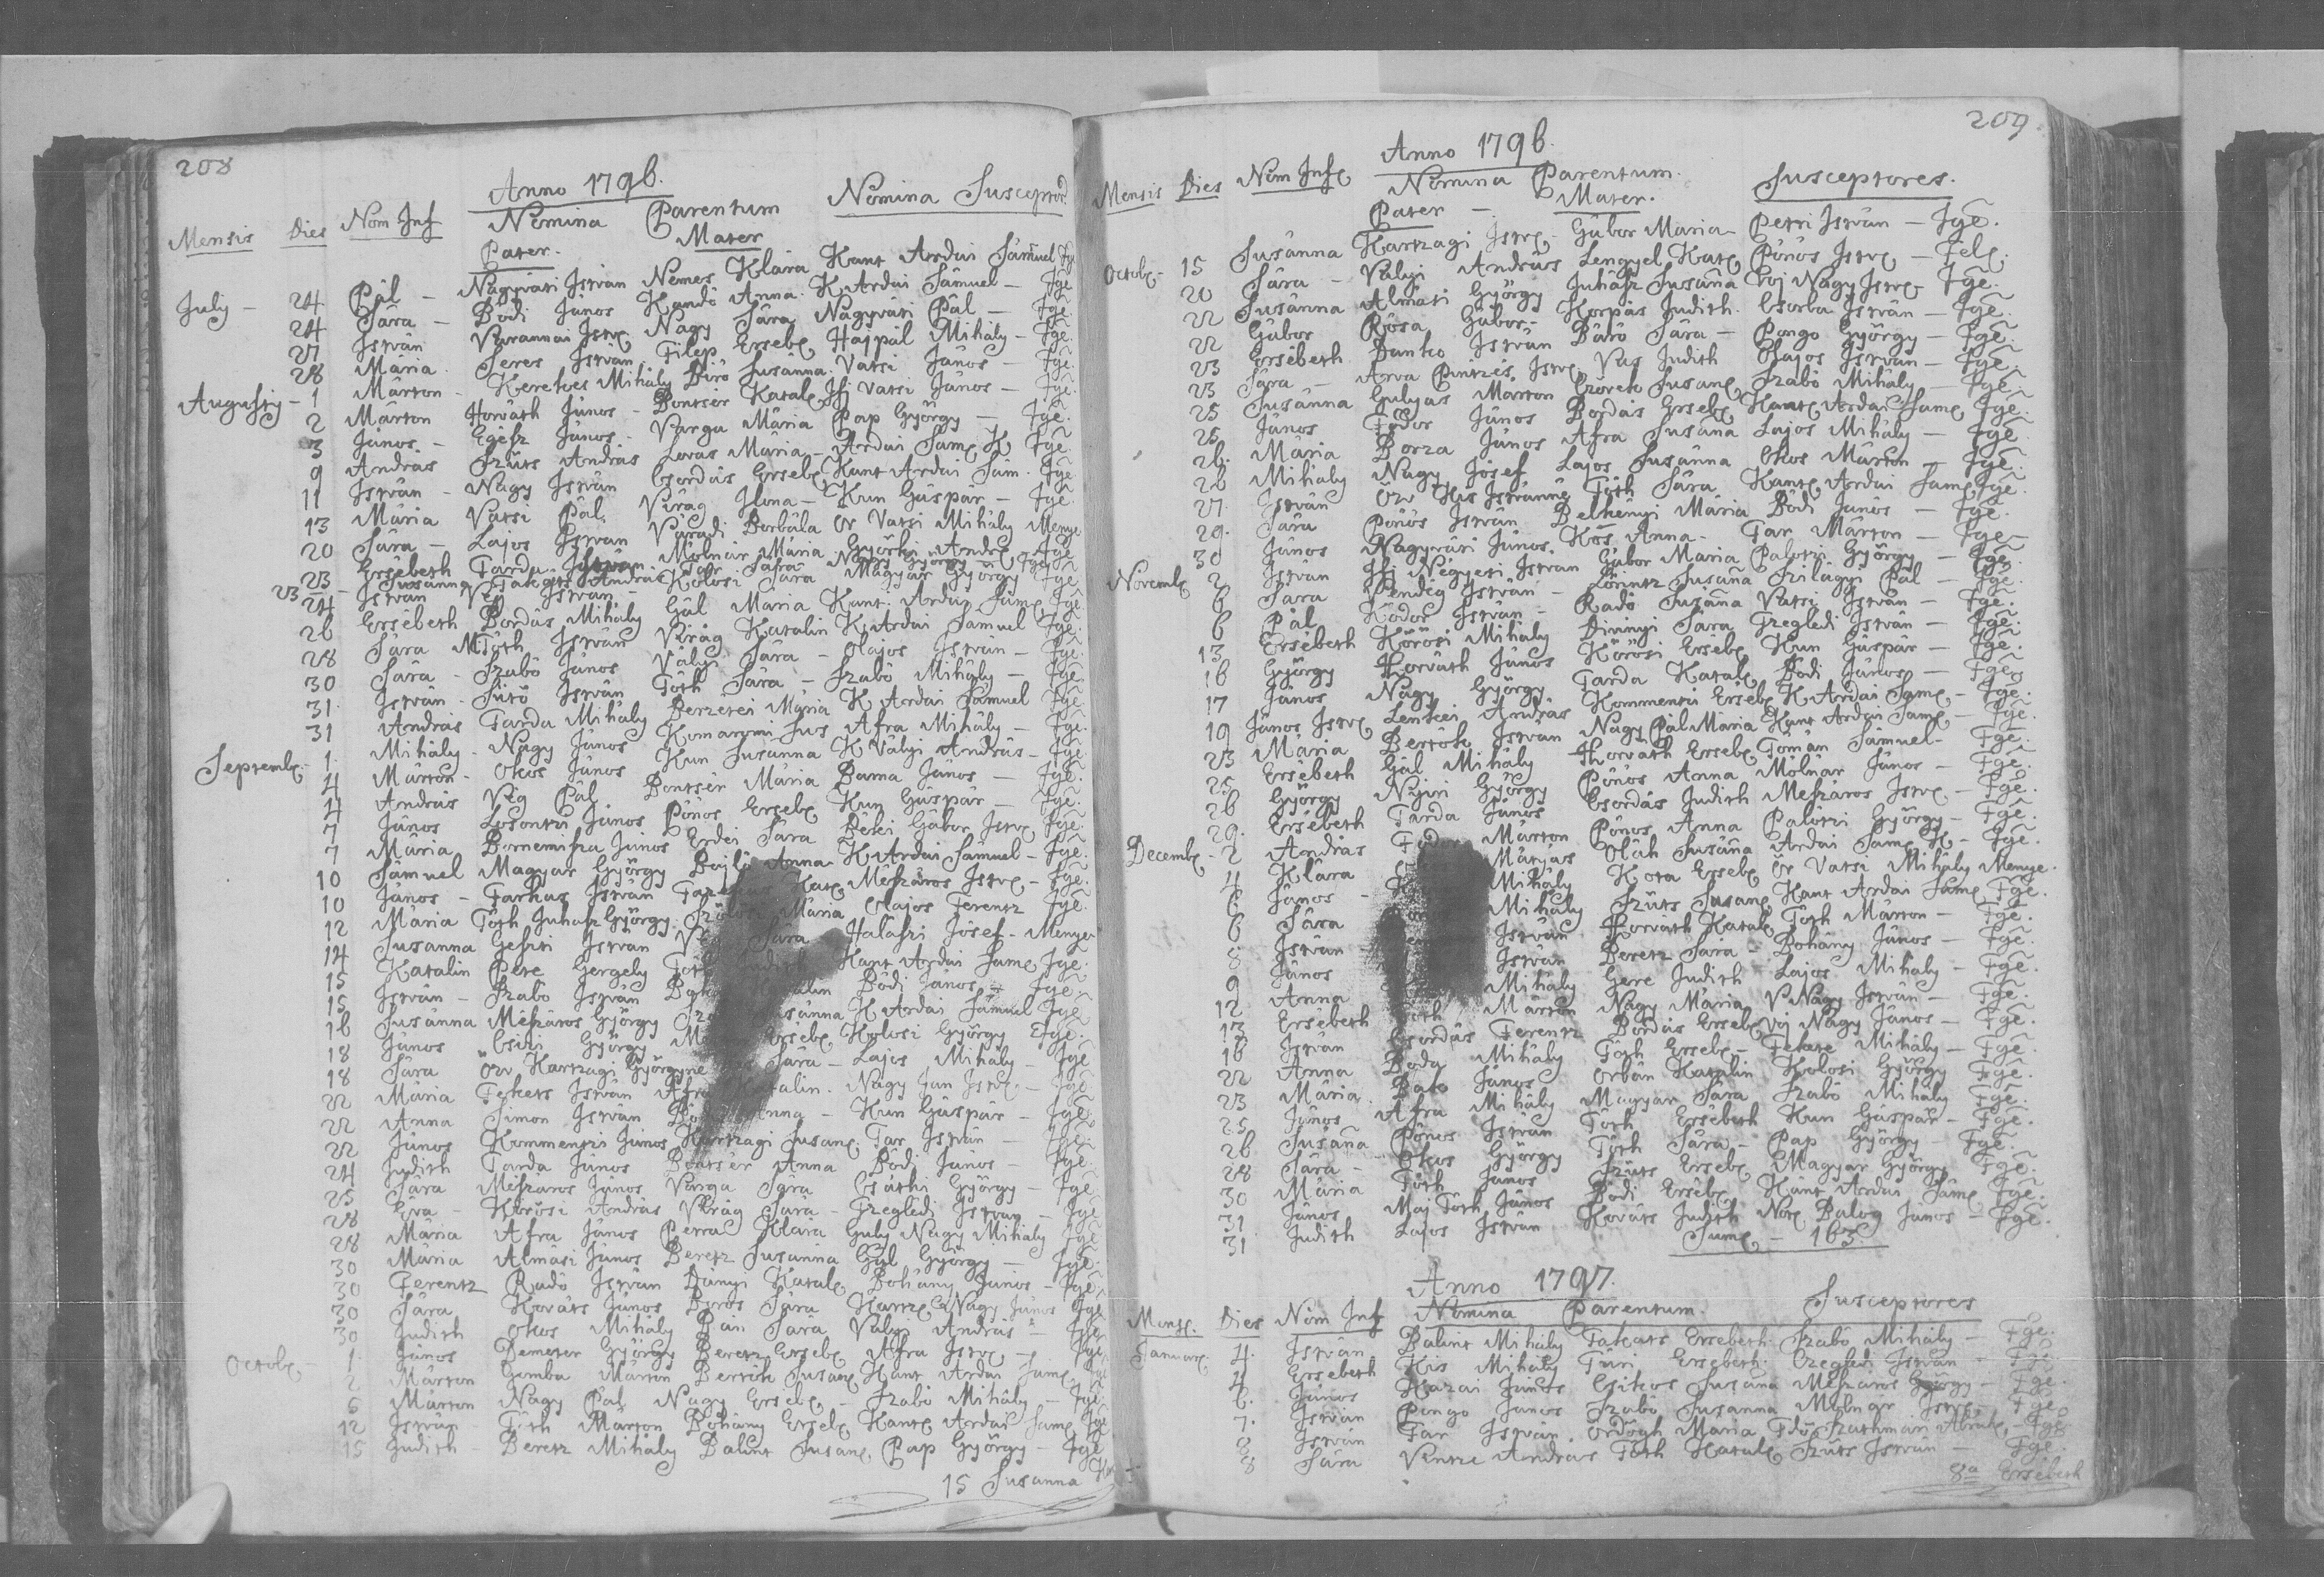 208
Anno 1796.
Mensis Dies Nom Inf Nomina Parentum Nomina Susceptor
Pater. Mater
July - 24 Pál - Nagyváti István Nemes Klára Kant Ardai Sámuel
24 Sára - Bódi János Kandó Anna. K Ardai Sámuel - Fge
27 István Varannai Istv Nagy Sára Nagyváti Pál - Fge
28 Mária. Seres István Filep Ersebe Hajpál Mihály - Fge.
Augusty - 1 Márton - Kerekes Mihály Biró Susánna. Vatsi János - Fge.
2 Márton Horváth János - Bontsér Katal. Ifj Vatsi János - Fge.
3 János - Egész János - Varga Mária Pap György - Fge.
9 András Szüts András Lovas Mária - Ardai Sam K Fge.
11 István - Nagy István Csordás Erseb Kant Ardai Sám. Fge
13 Mária Vatsi Pál Virág Ilona - Kun Gáspár - Fge.
20 Sára - Lajos István Váradi Borbála Or Vatsi Mihály Menye
23 Ersébeth Tarda István Molnár Mária Györki Andr Fge
23 - Susánna Takáts András Tar Sára Nagy György - Fge
24 István Vég István - Kolosi Sára Magyar György Fge
26 Ersébeth Bordás Mihály Gál Mária Kant. Ardai Sám Fge.
28 Sára M Tóth István Virág Katalin K Ardai Samuel Fge
30 Sára - Szabó János Vályi Sára - Olajos István - Fge.
31. István - Sütő István Tóth Sára - Szabó Mihály - Fge.
31 András Tarda Mihály Berzetei Mária K Ardai Sámuel Fge
Septemb. 1. Mihály - Nagy János Komaromi Sus Afra Mihály - Fge.
4 Márton - Okos János Kun Susanna K Vályi András - Fge
4 András Vég Pál Bontsér Mária Barna János - Fge.
7 János Losontzi János Pónos Erseb Kun Gáspár - Fge.
7 Mária Bornemisza János Erdei Sára Békei Gábor Istv Fge.
10 Sámuel Magyar György Anna K Ardai Sámuel - Fge.
10 János - Farkas István Kat Mészáros Istv - Fge.
12 Mária Tóth Juhász György. Mária Olajos Ferentz Fge.
14 Susanna Geszti István Sára Halászi Jósef - Menye
15 Katalin Pete Gergely Kant Ardai Sam Fge.
15 István - Szabó István Bódi János - Fge.
16 Susánna Mészáros György Susánna K Ardai Sámuel Fge
18 János Csiki György Erséb Kolosi György Fge.
18 Sára Özv Kartzagi Györgyné Sára - Lajos Mihály - Fge
22 Mária Fekets István Afra Katalin. Nagy Jan Istv - Fge
22 Anna Simon István Anna - Kun Gáspár - Fge.
22 János Kommentzi János Kartzagi Susan. Tar István - Fge.
24 Judith Tarda János Bontsér Anna Bódi János - Fge.
25 Sára Mészáros János Varga Sára Csáthi György - Fge
28 Éva - Kőrösi András Virág Sára - Tzeglédi István - Fge
28 Mária Afra János Perra Klára Guly Nagy Mihály Fge
30 Mária Almási János Beretz Susanna Gál György - Fge.
30 Ferentz Radó István Dányi Katal Bohány János - Fge
30 Sára Kováts János Biros Sára Nagy János Fge
30 Judith Okos Mihály Bán Sára Vályi András - Fge
Octob - 1. János Demeter György Beretz Erseb Afra Istv - Fge
2 Márton Gomba Márton Bertók Susan Kant Ardai Sam Fge
6 Márton Nagy Pál Nagy Erseb - Szabó Mihály - Fge
12 István - Tóth Márton Bohány Erseb Kant Ardai Sam Fge
15 Judith - Beretz Mihály Bálint Susan Pap György - Fge
15 Susanna
209
Anno 1796.
Mensis Dies Nom Inf Nomina Parentum. Susceptores.
Pater - Mater.
Octob - 15 Susánna Kartzagi Istv - Gábor Mária - Petri István - Fge.
20 Sára - Vályi András Lengyel Kat Pónos Istv - Fele.
22 Susánna Almási György Juhász Susána Voj Nagy Istv - Fge.
22 Gábor Rósa Gábor - Korpás Judith. Csorba István - Fge.
23 Ersébeth Danko István Báró Sára - Pongo György - Fge.
23 Sára - Arva Pintzés Istv. Vas Judith Olajos István - Fge.
25 Susánna Gulyas Márton Susan Szabó Mihály - Fge.
25 János Fodor János Bordás Erseb Kant Ardai Sam Fge.
26. Mária Borza János Afra Susána Lajos Mihály - Fge.
26 Mihály Nagy Jósef Lajos Susánna Okos Márton - Fge.
27. István Özv Kis Istvánné Tóth Sára Kant Ardai Sam Fge.
29. Sára Pónos István Belhényi Mária Bódi János - Fge.
30 János Nagyváti János. Kos Anna - Tar Márton - Fge -
Novemb 2 István Ifj Négyesi István Gábor Maria Palotzi György - Fge
6 Sára Vendég István - Lőrintz Susána Szilágyi Pál - Fge.
6 Pál Kódor István - Radó Susána Vatsi István - Fge.
13 Ersébeth Kőrösi Mihály Divinyi Sára Tzeglédi István - Fge.
16 György Horváth János Kőrösi Erséb Kun Gáspár - Fge.
17 János Nagy György Tarda Katal Bódi János - Fge.
19 János Istv Lenkei András Kommentzi Erséb K Ardai Sam - Fge.
23 Mária Bertók István Nagy Pál Mária Kant Ardai Sam - Fge.
25 Ersébeth Gál Mihály Horváth Erseb Tomán Sámuel - Fge.
26 György Nyiri György Pónos Anna Molnár János - Fge.
29. Ersébeth Tarda János Csordás Judith Mészáros Istv - Fge.
Decemb - 2 András Márton Pónos Anna Palotzi György - Fge.
4 Klára Mátyás Oláh Susána Ardai Sam K - Fge.
6 János - Mihály Kota Erseb Or Vatsi Mihály Menye.
6 Sára Mihály Szüts Susan Kant Ardai Sam Fge.
8 István István Horváth Katal Tóth Márton - Fge.
9 János István Beretz Sára - Bohány János - Fge.
12 Anna Mihály Gere Judith - Lajos Mihály - Fge.
13 Ersébeth Tóth Márton Nagy Mária V Nagy István - Fge.
16 István Csordás Ferentz Bordás Erseb Voj Nagy János - Fge.
22 Anna Boda Mihály Tóth Erseb - Fekete Mihály - Fge.
23 Mária. Bako János Orbán Katalin Kolosi György Fge.
25 János Afra Mihály Magyar Sára Szabó Mihály Fge.
26 Susána Pónos István Tóth Ersébeth Kun Gáspár - Fge.
28 Sára - Okos György Tóth Sára - Pap György - Fge.
30 Mária Tóth János Szüts Erseb Magyar György Fge.
31 János Maj Tóth János Bódi Erséb Kant Ardai Sam Fge.
31 Judith Lajos István Kováts Judith Not Balog János - Fge.
Sum - 163.
Anno 1797.
Mens. Dies Nom Inf Nomina Parentum. Susceptores
Januar. 4. István Bálint Mihály Takats Ersebeth. Szabó Mihály - Fge.
4 Ersebeth Kis Mihály Turi Ersebeth. Czeglédi István - Fge
6. János Kazai János Csikos Susána Mészáros György - Fge.
7. István Pongo János Szabó Susanna Molnár Istv - Fge.
8 István Tar István. Ördögh Mária Szathmári Fge
8 Sára Vintze András Tóth Katal Szüts István - Fge.
8a Ersébeth